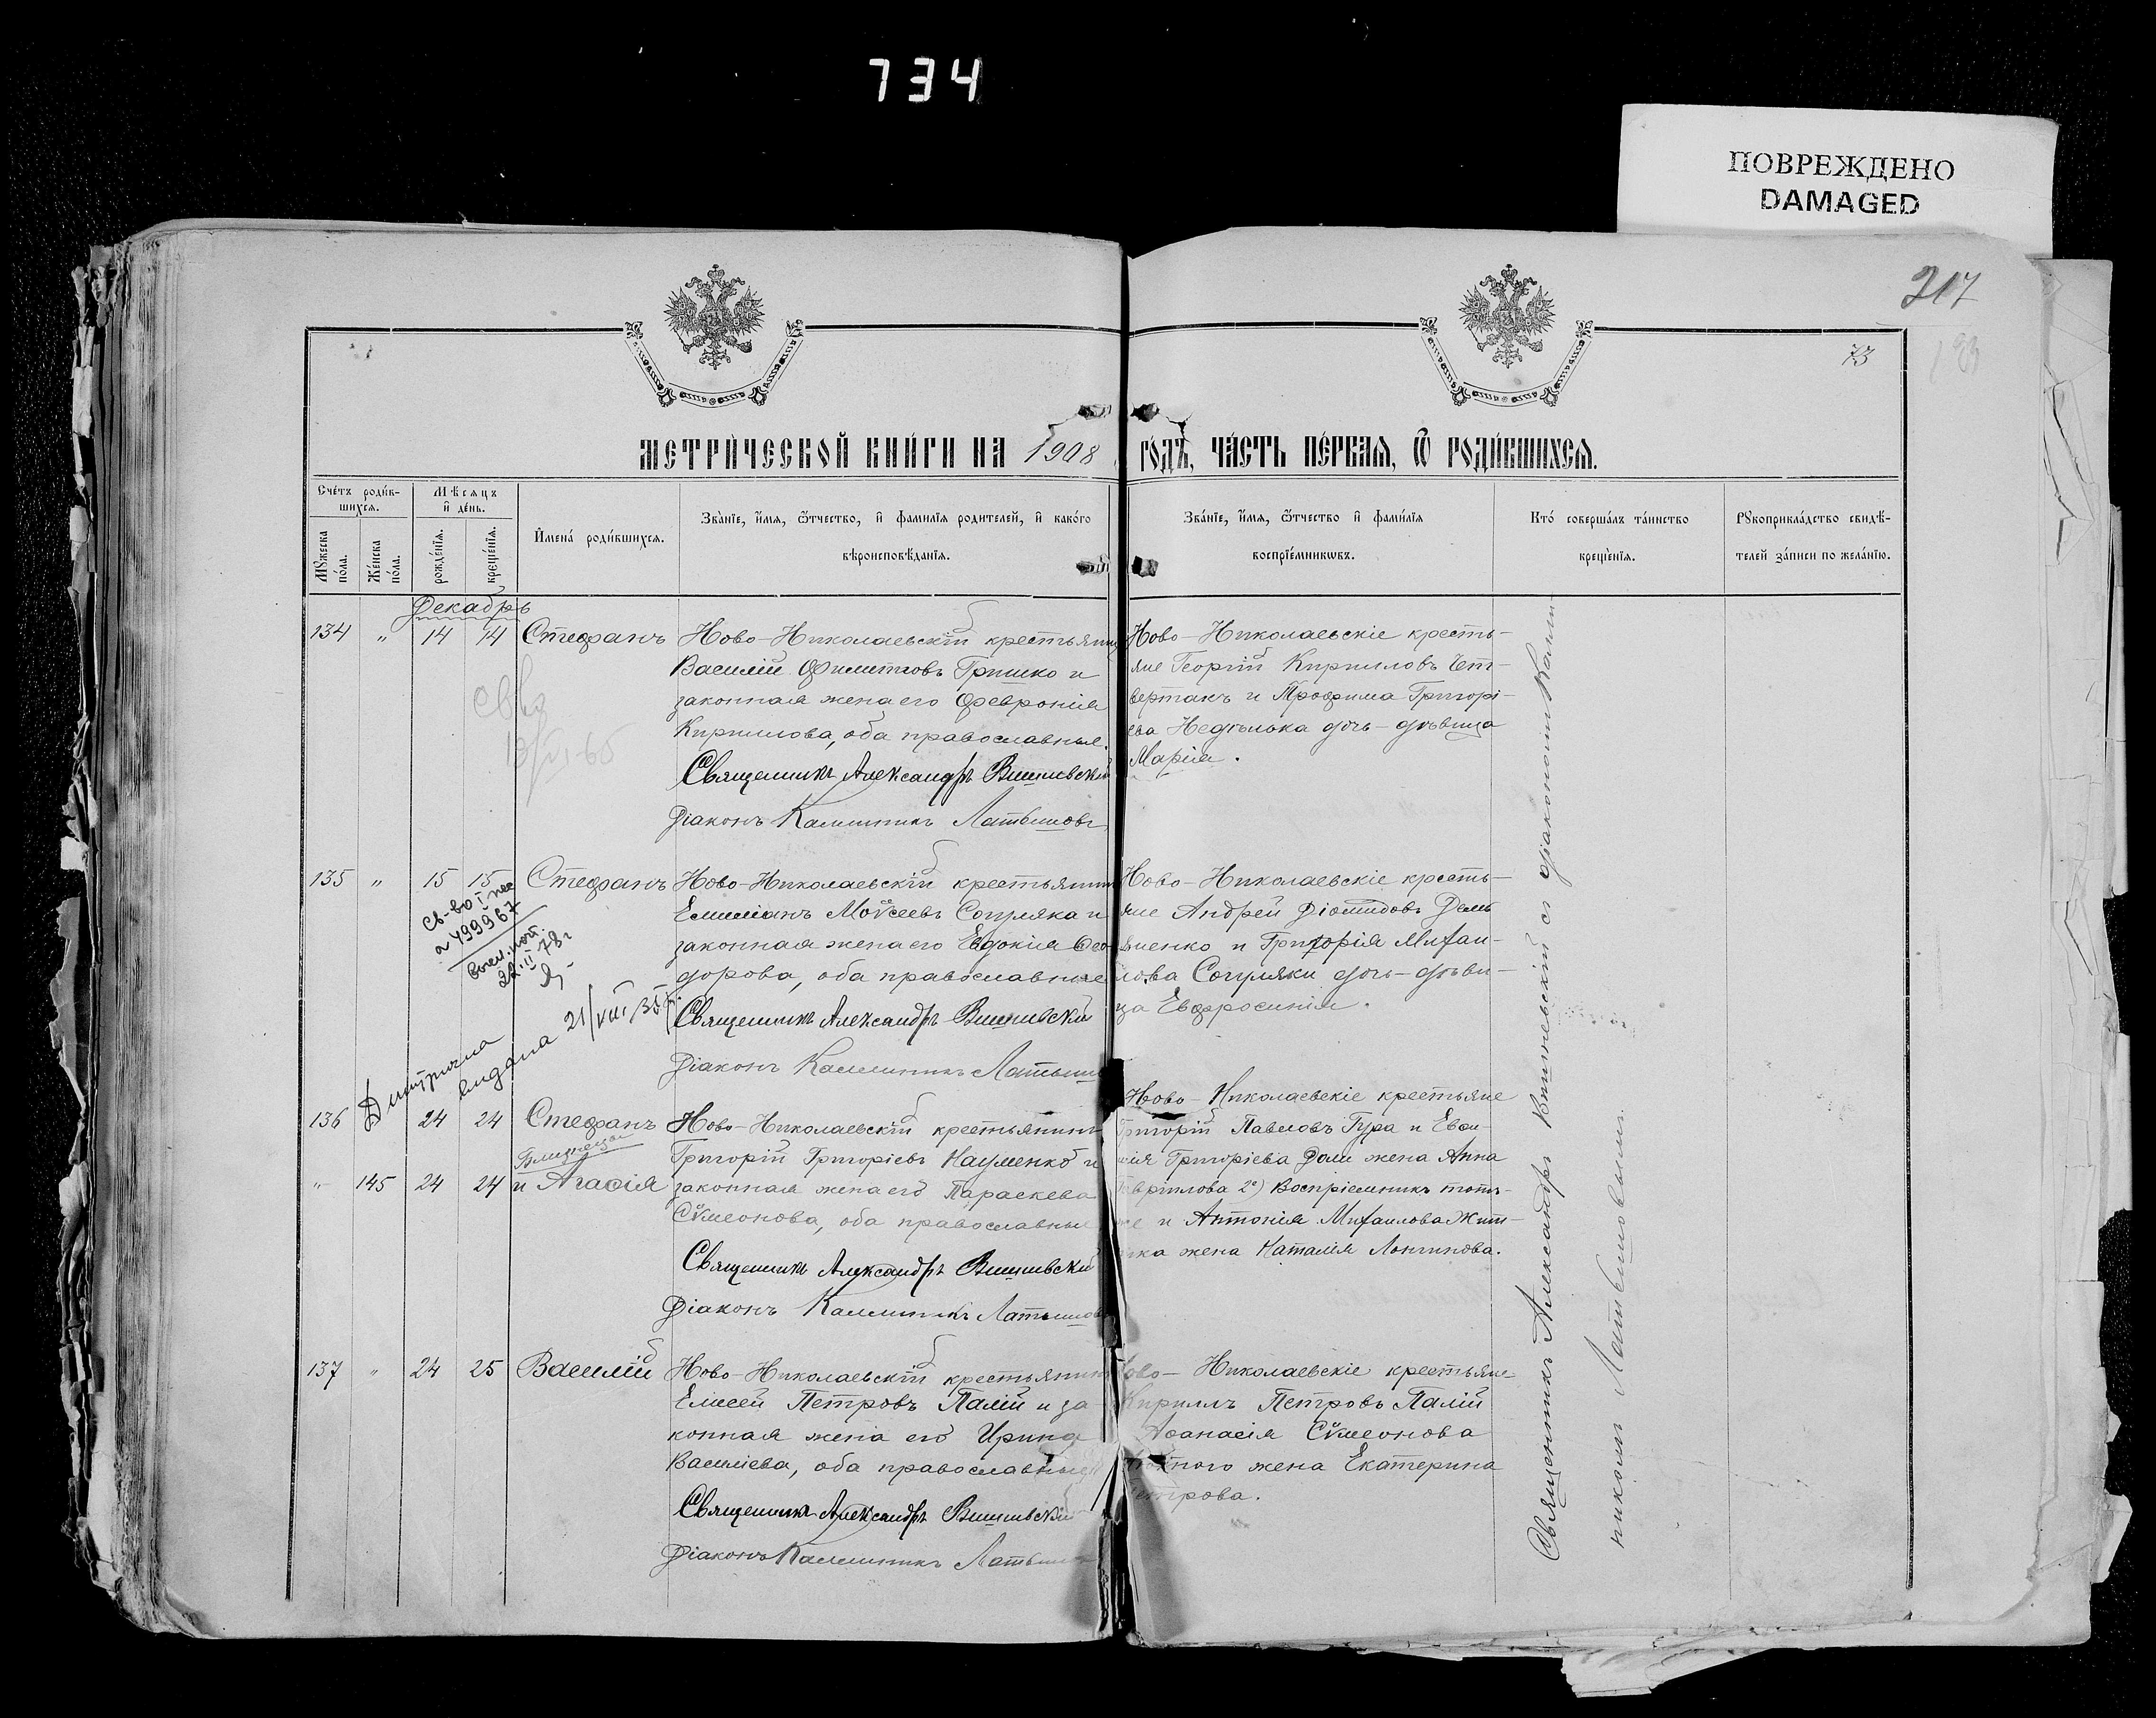 734
ПОВРЕЖДЕНО
DAMAGED
217
73
МЕТРИ́ЧЕСКОЙ КНИ́ГИ НА 1908 ГО́ДЪ, ЧА́СТЬ ПЕ́РВАЯ, Ѿ РОДИ́ВШИХСЯ.
Сче́тъ роди́в-
шихся.
Мѣ́сяцъ
и҆ де́нь.
Му́жеска
по́ла.
Же́нска
по́ла.
рожде́нїя.
креще́нїя.
И҆мена̀ роди́вшихся.
Зва́нїе, и҆́мя, ѻ҆́тчество, и҆ фами́лїя роди́телей, и҆ како́гѡ
вѣроисповѣ́данїя.
Зва́нїе, и҆́мя, ѻ҆́тчество и҆ фами́лїя
воспрїе́мникѡвъ.
Кто̀ соверша́лъ та́инство
креще́нїя.
Рꙋкоприкла́дство свидѣ́-
телей за́писи по жела́нїю.
Декабрь
134 „ 14 14 Стефанъ
Ново-Николаевскій крестьянинъ
Василій Филиповъ Гришко и
законная жена его Феврония
Кириллова, оба православные.
Священникъ Александръ Вишневскій
Діаконъ Каллиникъ Латышовъ
Ново-Николаевскіе кресть-
яне Георгій Кирилловъ Чет-
вертакъ и Трофима Григорі-
ева Недѣлька дочь-дѣвица
Марія.
135 „ 15 15 Стефанъ
Св-во I
499967
21/VIII 35 г.
Ново-Николаевскій крестьянинъ
Емиліанъ Моѵсеевъ Согуляка и
законная жена его Евдокія Ѳео-
дорова, оба православные
Священникъ Александръ Вишневскій
Діаконъ Каллиникъ Латыш
Ново-Николаевскіе кресть-
яне Андрей Діомидовъ Демь-
яненко и Григорія Михаи-
лова Согуляки дочь-дѣви-
ца Евфросинія.
136 24 24 Стефанъ
Близнецы
„ 145 24 24 и Агафія
Ново-Николаевскій крестьянинъ
Григорій Григоріевъ Науменко и
законная жена его Параскева
Сѵмеонова, оба православные
Священникъ Александръ Вишневскій
Діаконъ Каллиникъ Латышовъ
Ново-Николаевскіе крестьяне
Григорій Павловъ Гура и
Григоріева жена Анна
Гаврілова 2е) Воспріемникъ тотъ-
же и Антонія Михаилова
жена Наталія Лонгинова.
137 „ 24 25 Василій
Ново-Николаевскій крестьянинъ
Елисей Петровъ Палій и за-
конная жена его Ирина
Василіева, оба православные
Священникъ Александръ Вишневскій
Діаконъ Каллиникъ Латыш
Ново-Николаевскіе крестьяне
Кириллъ Петровъ Палій
Аѳанасія Сѵмеонова
жена Екатерина
Петрова.
Священникъ Александръ Вишневскій съ діакономъ Калли-
никомъ Латышовымъ.